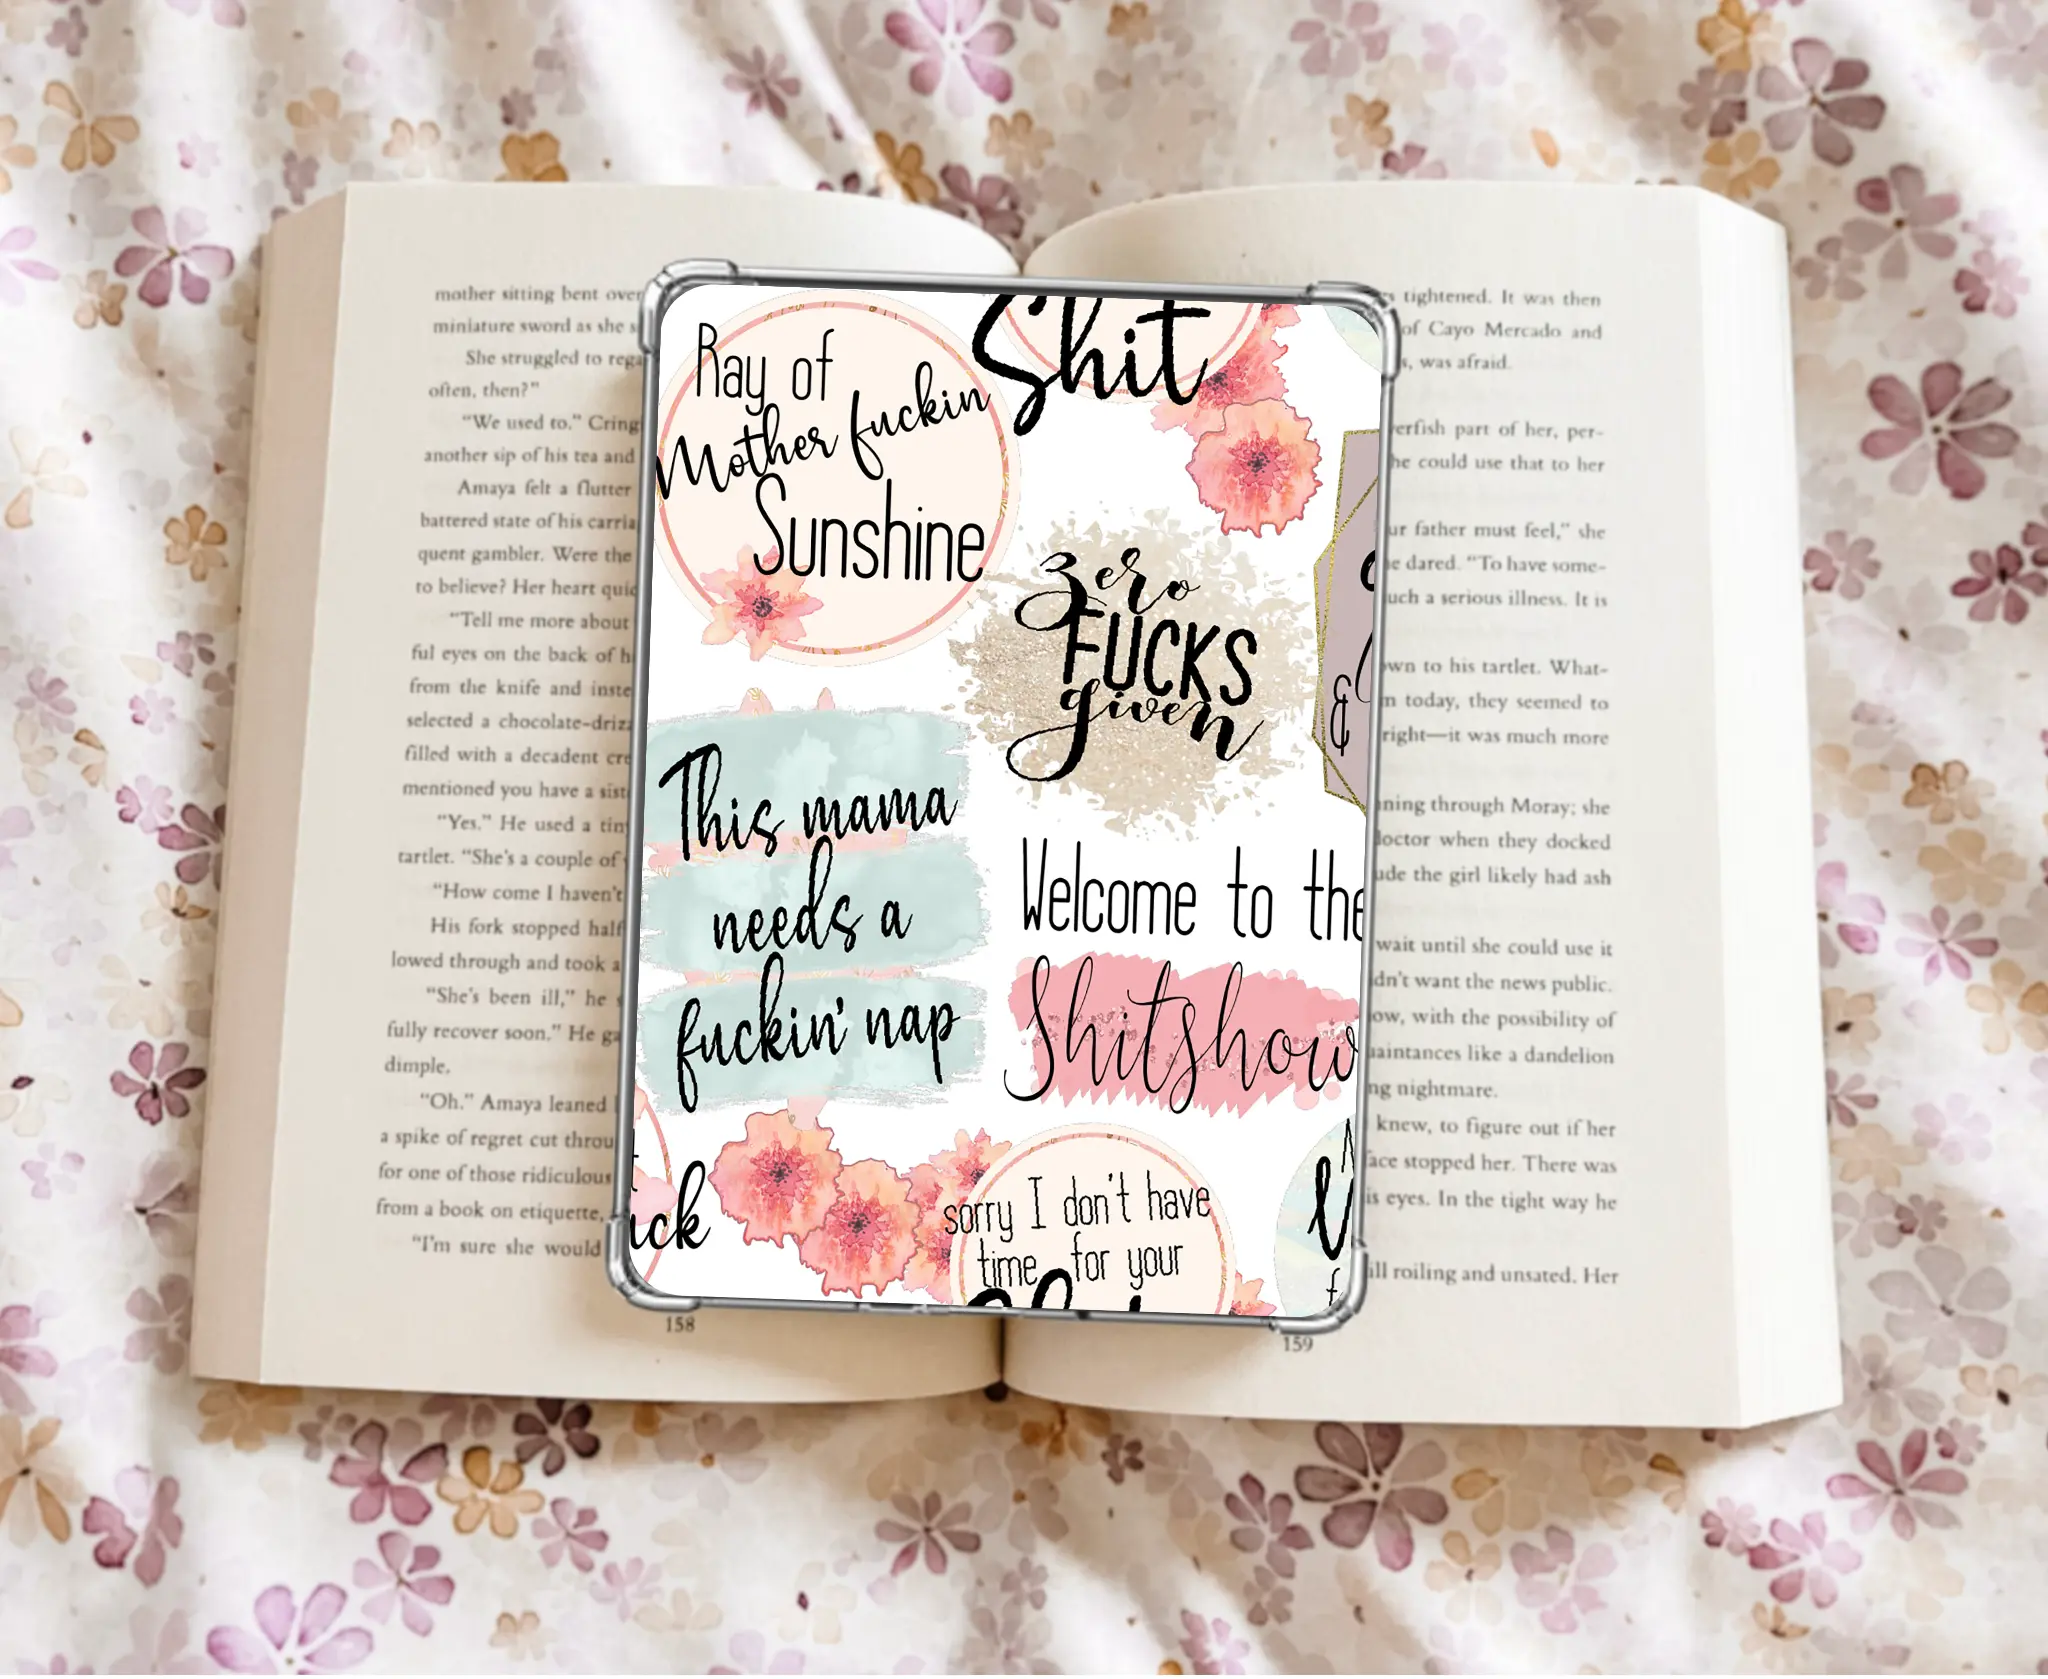 mother sitting bent over
miniature sword as she s
She struggled to rega
often, then?"
"We used to." Cring
another sip of his tea and
Amaya felt a flutter
battered state of his carria
quent gambler. Were the
to believe? Her heart quic
"Tell me more about
ful eyes on the back of h
from the knife and inste
selected a chocolate-drizz
filled with a decadent cre
mentioned you have a sist
"Yes." He used a tin
tartlet. "She's a couple of
"How come I haven't
His fork stopped half
lowed through and took a
"She's been ill," he s
fully recover soon." He ga
dimple.
"Oh." Amaya leaned
a spike of regret cut throu
for one of those ridiculous
from a book on etiquette,
"I'm sure she would
158
Ray of
Mother fuckin
Sunshine
Shit
zero
FUCKS
given
&
This mama
needs a
fuckin' nap
Welcome to the
Shitshow
uck
sorry I don't have
time for your
tightened. It was then
of Cayo Mercado and
s, was afraid.
erfish part of her, per-
he could use that to her
ur father must feel," she
e dared. "To have some-
uch a serious illness. It is
wn to his tartlet. What-
n today, they seemed to
right—it was much more
ning through Moray; she
doctor when they docked
ude the girl likely had ash
wait until she could use it
dn't want the news public.
ow, with the possibility of
uaintances like a dandelion
ng nightmare.
knew, to figure out if her
face stopped her. There was
is eyes. In the tight way he
ill roiling and unsated. Her
159